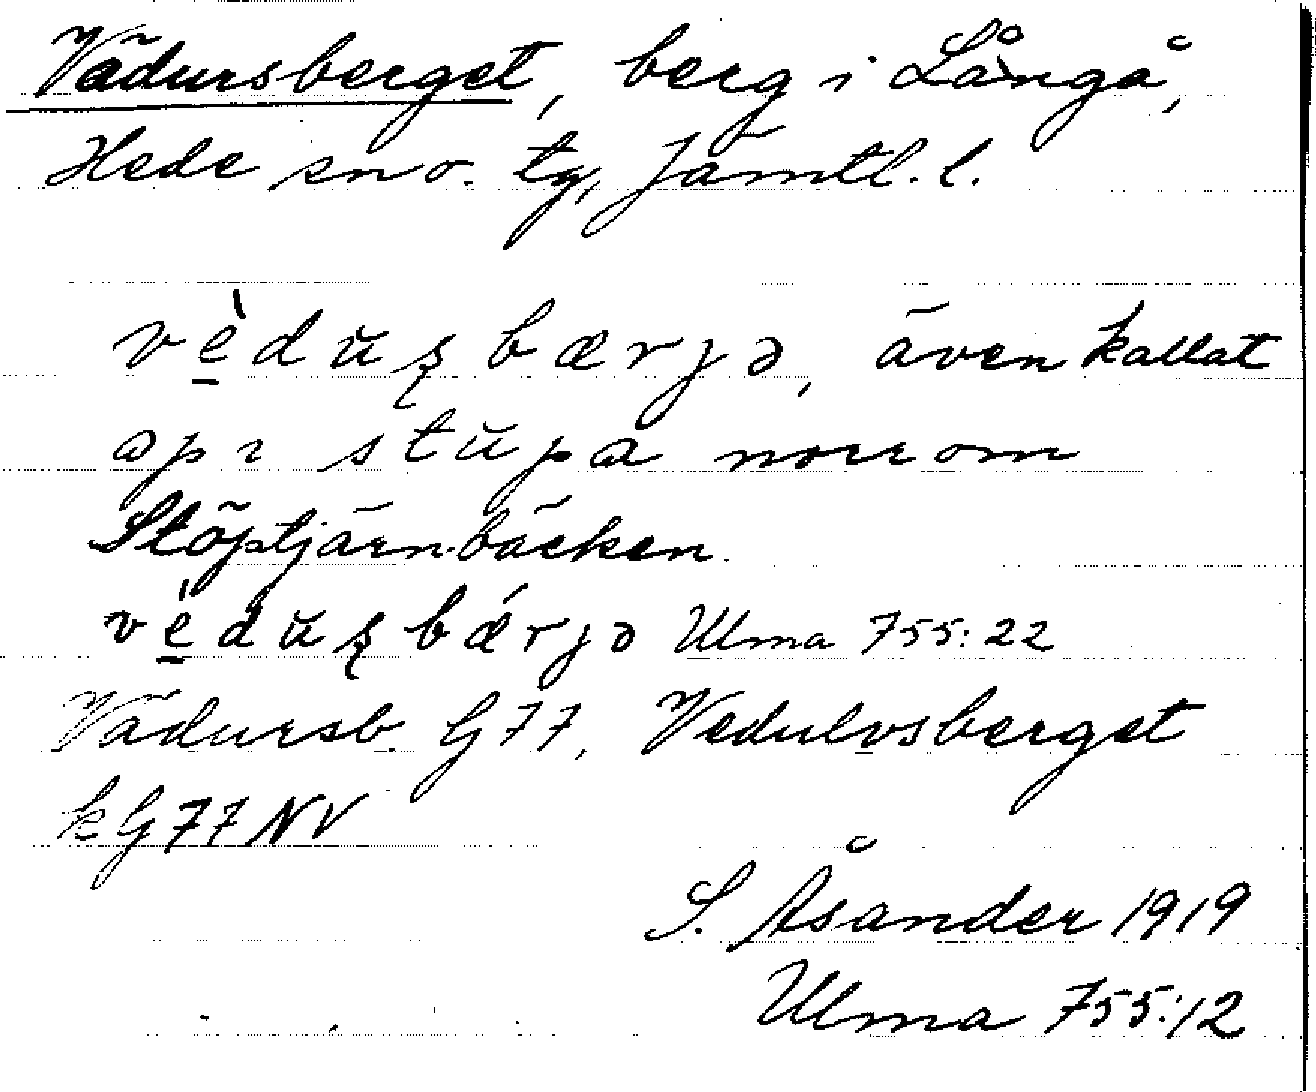 Vädursberget, berg i Långå,
Hede sn o. tg, Jämtl. l.
vè̱dŭʂbærjə, även kallat
əpı stŭpa norr om
Stöptjärnbäcken.
vè̱dŭʂbǽrjə Ulma 755:22
Vädursb. G77, Vedulvsberget
kG77NV
S. Åsander 1919
Ulma 755:12